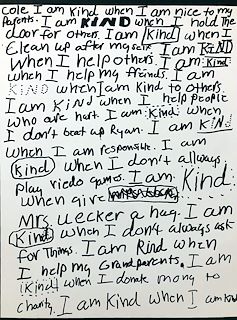 cole I am kind when I am nice to my
Parents. I am KIND when I hold the
door for others. I am Kind when I
Clean up after myself. I am KIND
When I help others. I am Kind
when I help my friends. I am
KIND when I am Kind to others.
I am Kind when I help people
who are hurt. I am Kind when
I don't beat up Ryan. I am KIND
when I am responsible. I am
Kind when I don't allways
Play viedo games. I am Kind
when give
Mrs. uecker a hug. I am
Kind when I don't always ask
for Things. I am Kind when
I help my Grandparents. I am
Kind when I donate mony to
charity. I am Kind when I am kind